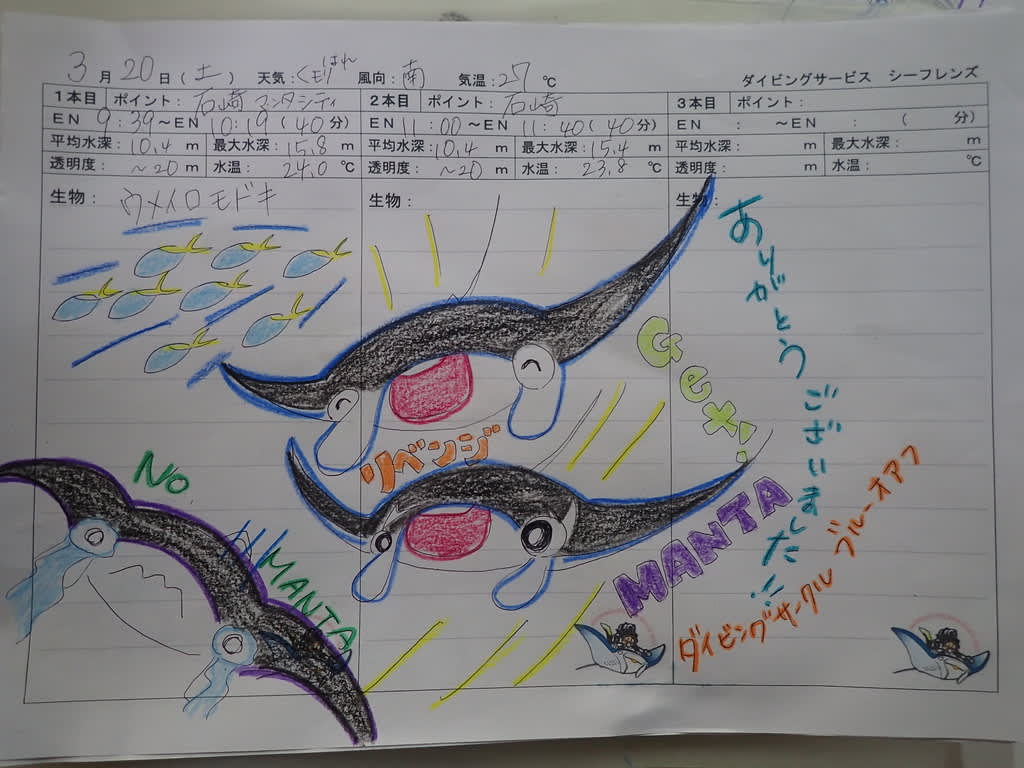 3月20日(土) 天気:くもり はれ 風向:南 気温:27℃ ダイビングサービス シーフレンズ
1本目 ポイント:石崎マンタシティ 2本目 ポイント:石崎 3本目 ポイント:
EN 9:39~EN 10:19(40分) EN 11:00~EN 11:40(40分) EN : ~EN : ( 分)
平均水深:10.4m 最大水深:15.8m 平均水深:10.4m 最大水深:15.4m 平均水深: m 最大水深: m
透明度:~20m 水温:24.0℃ 透明度:~20m 水温:23.8℃ 透明度: m 水温: ℃
生物:ウメイロモドキ 生物: 生物:
NO
MANTA
リベンジ
Get!
MANTA
ありがとうございました!!
ダイビングサークル ブルーオアフ